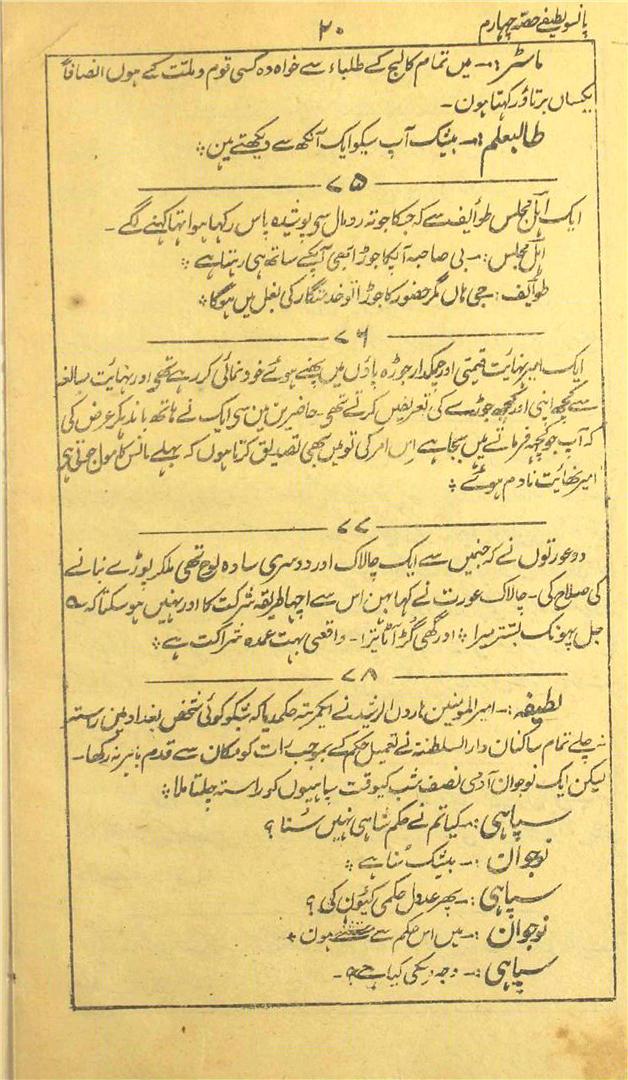 پانسو لطیفے حصہ چہارم
۲۰
ماسٹر:۔ میں تمام کالج کے طلباء سے خواہ وہ کسی قوم و ملت کے ہوں انصافاً
یکساں برتاؤ رکہتا ہون۔
طالبعلم:۔ بیشک آپ سبکو ایک آنکھ سے دیکھتے ہین؞
۷۵
ایک اہل مجلس طوائف سے کہ جسکا جوتہ رومال سی پوشیدہ پاس رکہا ہوا تہا کہنے لگے۔
اہل مجلس:۔ بی صاحبہ آپکا جوڑا تبھی آپکے ساتھ ہی رہتا ہے؞
طوائف:۔ جی ہاں مگر حضور کا جوڑا تو خدمتگار کی بغل میں ہوگا؞
۷۶
ایک امیر نہایت قیمتی اور چمکدار جوڑہ پاؤں میں پہنے ہوئے خود نمائی کر رہے تھی اور نہایت مبالغہ
سے کچھ اپنی اور کچھ جوڑے کی تعریفیں کرتے تھی۔ حاضرین مین سی ایک نے ہاتھ باندہکر عرض کی
کہ آپ جو کچہہ فرماتے ہیں بجا ہے اس امر کی تو میں بھی تصدیق کرتا ہوں کہ پہلے مانس کا مول جوتی ہی
امیر نھائت نادم ہوئے؞
۷۷
دو عورتوں نے کہ جنمیں سے ایک چالاک اور دوسری سادہ لوح تھی ملکر پوڑے بنانے
کی صلاح کی۔ چالاک عورت نے کہا بہن اس سے اچہا طریقہ شرکت کا اور نہیں ہو سکتا کہ
جل پہونک بستر میرا؞ اور گھی گُڑ آٹا تیرا۔ واقعی بہت عمدہ شراکت ہے؞
۷۸
لطیفہ:۔ امیر المومنین ہارون الرشید نے ایکمرتبہ حکمدیا کہ شبکو کوئی شخص بغداد مین رستہ
نہ چلے تمام ساکنان دار السلطنۃ نے تعمیل حکم کے بموجب رات کو مکان سے قدم باہر نہ رکھا۔
لیکن ایک نوجوان آدمی نصف شب کیوقت سپاہیوں کو راستہ چلتا ملا؞
سپاہی:۔ کیا تم نے حکم شاہی نہیں سُنا؟
نوجوان:۔ بیشک سُنا ہے؞
سپاہی:۔ پھر عدول حکمی کیوں کی؟
نوجوان:۔ میں اس حکم سے مستثنے ہون
سپاہی:۔ وجہ اسکی کیا ہے؟۔